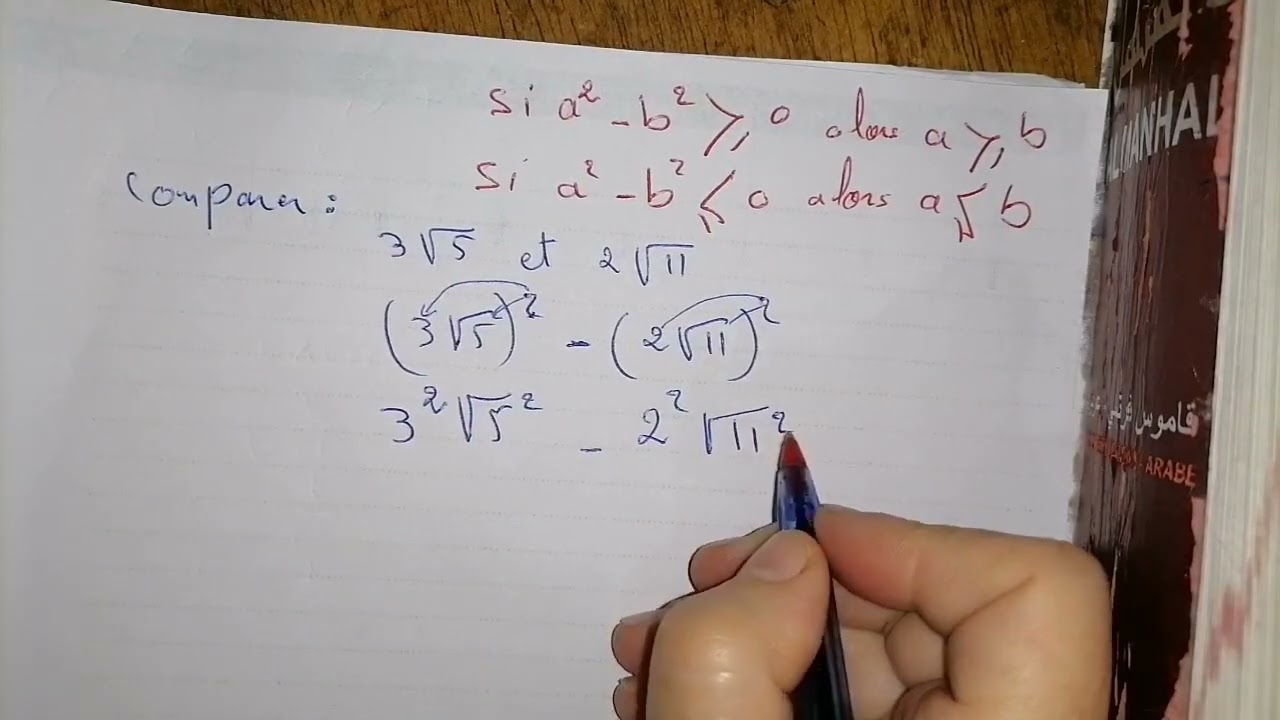 Si a² - b² ⩾ 0 alors a ⩾ b
Si a² - b² ⩽ 0 alors a ⩽ b
Comparer :
3√5 et 2√11
(3√5)² - (2√11)²
3²√5² - 2²√11²
MANHAL
قاموس فرنسي
ARABE